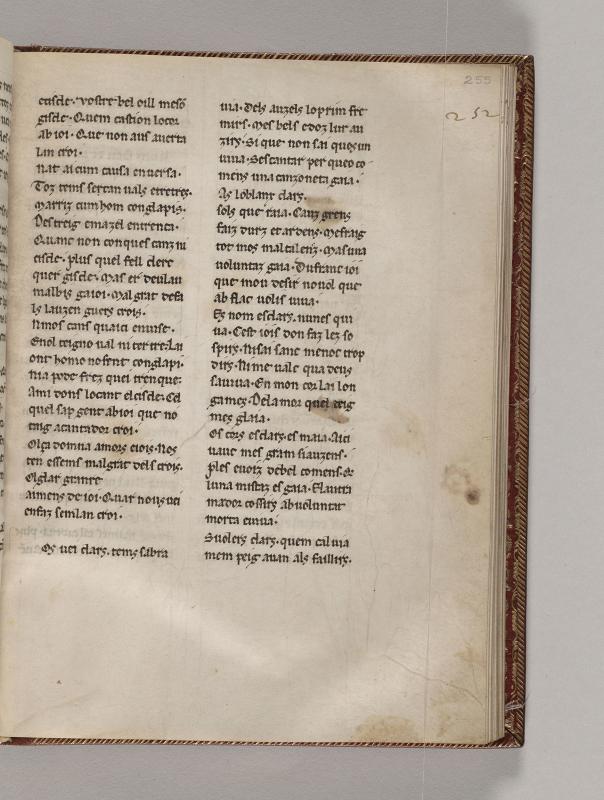 255
252
cisclé. vostre bel oill meson
giscle. Quem castion locor
ab ioi. Que non aus auerta
lan croi.
Nat ai cum causa enuersa.
Toz tems sercan uals e tertres.
Marritz cum hom conglapis.
Destreig e mazel entrenca.
Quant non conques canz ni
ciscle. plus quel fell clerc
quer giscle. Mas er deulau
malbis ga ioi. Mal grat dels
ls lauzen guers crois.
Nmos cans quaici enuerse.
Enol teigno ual ni tertre. Lai
ont homo no sent conglapi.
Nia pode frez quei trenque.
Ami dons lo cant el ciscle. Ed
quel sap gent ab ioi que no
taig a cantador croi.
Olça domna amors e iois. Nos
ten essems malgrat dels crois.
Olglar granre
aimens de ioi. Quar nous uei
en faz semlan croi.
Os uei clars. tems sabra
uia. Dels auzels lo prim fre
mirs. Mes bels e doz lur au
zirs. Si que non sai ques un
uiua. Ses cantar per queo co
mens una canzoneta gaia.
As loblanc clars.
sols que raia. Cauz greus
faiz durz et ardens. Mefraig
tot mos maltalenz. Mas una
voluntaz gaia. Dufranc ioi
que mou desir no uol que
ab flac volis uiua.
Es nom esclars. nunes qui
ua. Cest iois don faz lez so
spirs. Ni sai sanc me noc trop
dirs. Ni me uale qua deus
sauiua. En mon cor lai lon
games. Del amor quel teig
mes glaia.
Os cors es clars. es maia. Aici
uauc mes gram si auzens.
ples e uoiz de bel comens. &
luna mistaz es gaia. El autra
mador cossirs ab uoluntat
morta e uiua.
Suolers clars. quem caluia
mem peig auan als faillirs.